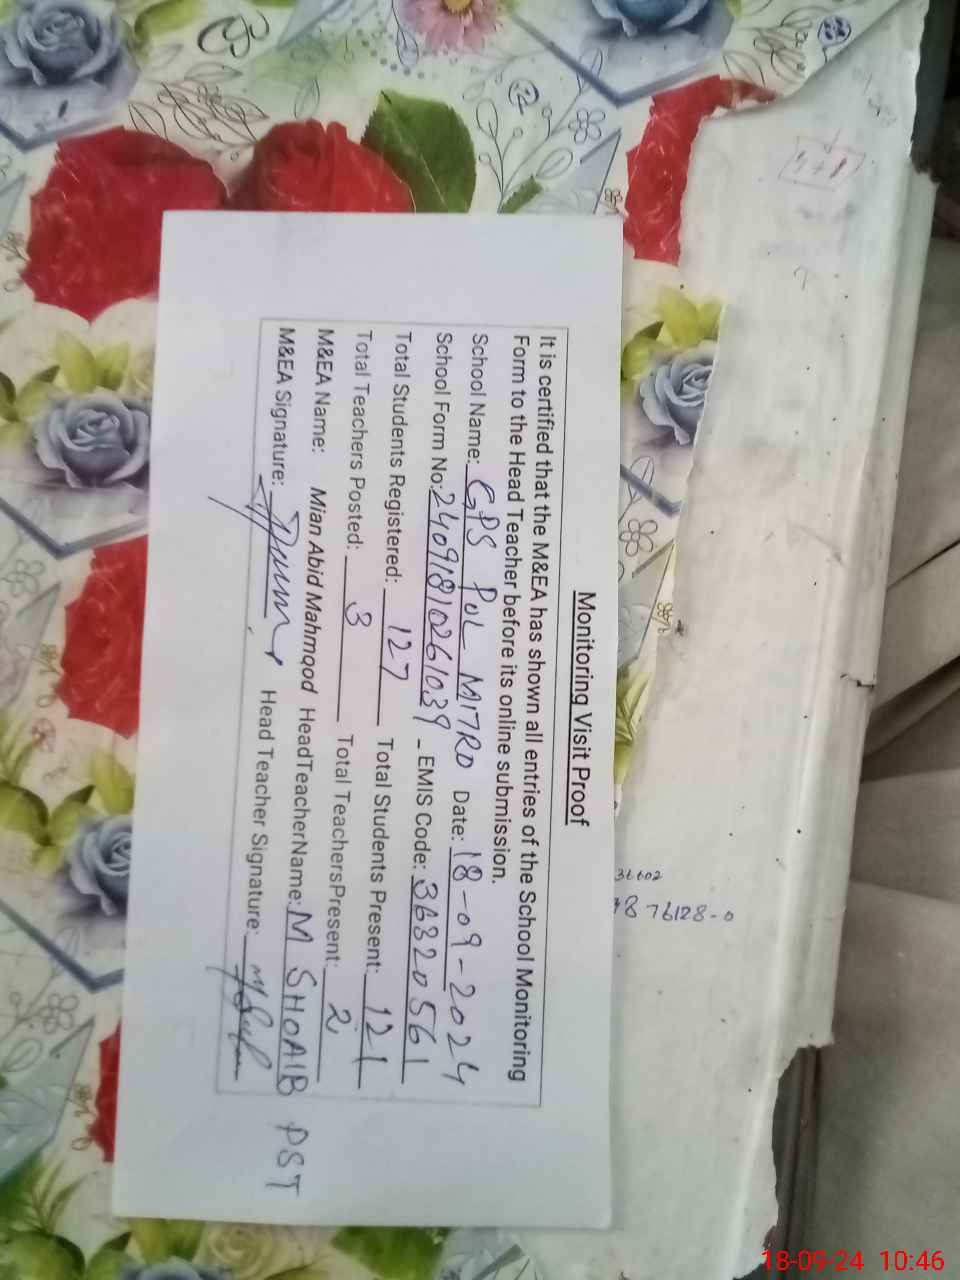 Monitoring Visit Proof
It is certified that the M&EA has shown all entries of the School Monitoring
Form to the Head Teacher before its online submission.
School Name: GPS PUL MITRO Date: 18-09-2024
School Form No: 24091810261039 - EMIS Code: 36320561
Total Students Registered: 127 Total Students Present: 121
Total Teachers Posted: 3 Total TeachersPresent: 2
M&EA Name: Mian Abid Mahmqod HeadTeacherName: M SHOAIB PST
M&EA Signature: Head Teacher Signature:
36602
876128-0
18-09-24 10:46